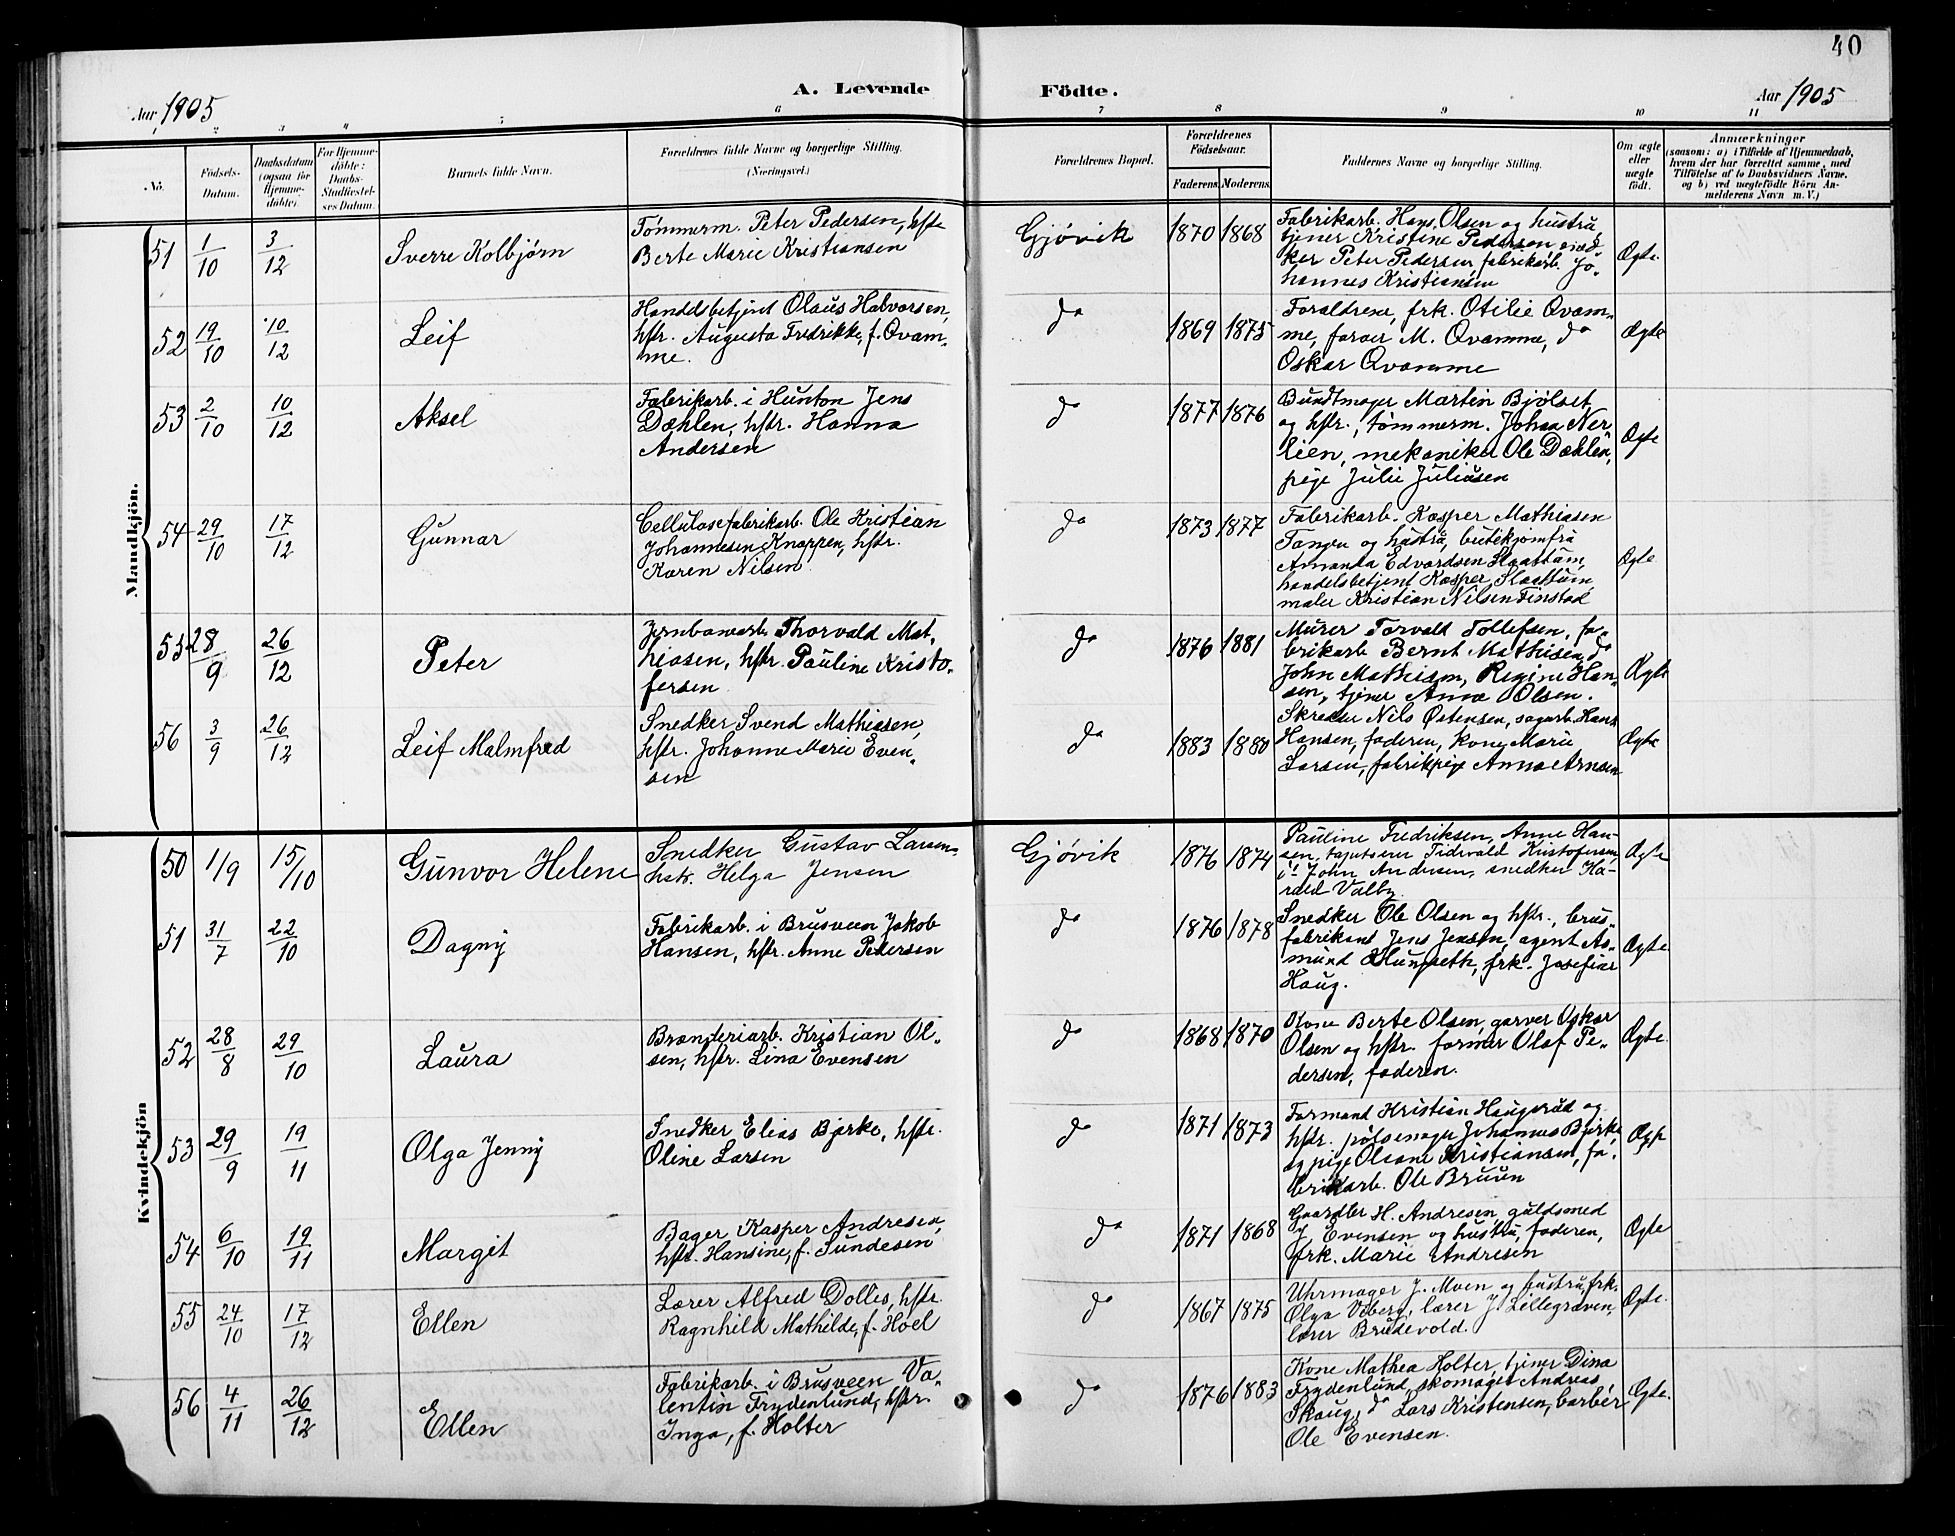 40
A. Levende Födte.
Aar 1905
Aar 1905
1 2 3 4 5 6 7 8 9 10 11
No.
Födsels-
Datum.
Daabsdatum
(ogsaa for
Hjemme-
döbte)
For Hjemme-
döbte:
Daabs-
Stadfæstel-
ses Datum.
Barnets fulde Navn.
Forældrenes fulde Navne og borgerlige Stilling.
(Næringsvei.)
Forældrenes Bopæl.
Forældrenes
Födselsaar.
Faderens. Moderens.
Faddernes Navne og borgerlige Stilling.
Om ægte
eller
uægte
födt.
Anmærkninger
(saasom: a) i Tilfælde af Hjemmedaab,
hvem der har forrettet samme, med
Tilföielse af to Daabsvidners Navne.
og b) ved uægtefödte Börn An-
melderens Navn m. V.)
Mandkjön.
51 1/10 3/12 Sverre Kolbjørn
Tømmerm. Peter Pedersen, hstr
Berte Marie Kristiansen
Gjøvik 1870 1868
Fabrikarb. Hans Olsen og hustru,
tjener Kristine Pedersen, sned
ker Peter Pedersen, fabrikarb. Jo-
hannes Kristiansen
Ægte.
52 19/10 10/12 Leif
Handelsbetjent Olaus Halvorsen,
hstr. Augusta Fredrikke, f. Qvam-
me.
do 1869 1875
Forældrene, frk. Otilie Qvam-
me, farver M. Qvamme, do
Oskar Qvamme
Ægte
53 2/10 10/12 Aksel
Fabrikarb. i Hunton Jens
Dæhlen, hstr. Hanna
Andersen
do 1877 1876
Bundtmager Martin Bjölset
og hstr., tömmerm. Johan Ner-
lien, mekaniker Ole Dæhlen,
pige Julie Juliusen
Ægte
54 29/10 17/12 Gunnar
Cellulosefabrikarb. Ole Kristian
Johannesen Knappen, hstr.
Karen Nilsen
do 1873 1877
Fabrikarb. Kasper Mathiasen
Tangen og hustru, butikjomfru
Amanda Edvardsen Slaattum,
handelsbetjent Kasper Slaattum,
maler Kristian Nilsen Finstad
Ægte
55 28/9 26/12 Peter
Jernbanearb. Thorvald Mat-
hiasen, hstr. Pauline Kristo-
fersen
do 1876 1881
Murer Torvald Tollefsen, fa-
brikarb Bernt Mathisen, do
John Mathisen, Regine Han-
sen, tjener Anne Olsen.
Ægte
56 3/9 26/12 Leif Malmfred
Snedker Svend Mathiasen,
hstr. Johanne Marie Even-
sen
do 1883 1880
Skrædder Nils Östensen, sagarb. Hans
Hansen, faderen, kone Marie
Larsen, fabrikpige Anna Arnesen
Ægte
Kvindekjön
50 1/9 15/10 Gunvor Helene
Snedker Gustav Larsen
hstr. Helga Jensen
Gjøvik 1876 1874
Pauline Fredriksen, Anne Han-
sen, Tidevald Kristofersen,
John Andersen, snedker Ha-
rald Valby
Ægte
51 31/7 22/10 Dagny
Fabrikarb. i Brusveen Jakob
Hansen, hstr. Anne Pedersen
do 1876 1878
Snedker Ole Olsen og hstr., brus-
fabrikant Jens Jensen, agent As-
mund, frk. Josefine
Haug.
Ægte
52 28/8 29/10 Laura
Brænderiarb. Kristian Ol-
sen, hstr. Lina Evensen
do 1868 1870
Kone Berte Olsen, garver Oskar
Olsen og hstr. former Olaf Pe-
dersen, faderen.
Ægte.
53 29/9 19/11 Olga Jenny
Snedker Elias Bjerke, hstr.
Oline Larsen
do 1871 1873
Formand Kristian Haugerud og
hstr. pölsemager Johannes Bjerke
og pige Olsane Kristiansen, fa-
brikarb. Ole Bruun
Ægte
54 6/10 19/11 Margit
Bager Kasper Andresen,
hstr. Hansine, f. Sundesen
do 1871 1868
Gaardbr H. Andresen, guldsmed
J. Evensen og hustru, faderen,
frk. Marie Andresen
Ægte
55 24/10 17/12 Ellen
Lærer Alfred Dolles, hstr.
Ragnhild Mathilde, f. Hoel
do 1867 1875
Uhrmager J. Moen og hustru, frk.
Olga Viberg, lærer J. Lillegraven,
lærer Brudevold.
Ægte.
56 4/11 26/12 Ellen
Fabrikarb. i Brusveen Va-
lentin Frydenlund, hstr.
Inga, f. Holter
do 1876 1883
Kone Mathea Holter, tjener Dina
Frydenlund, skomager Andreas
Skaug, do Lars Kristensen, barber
Ole Evensen.
Ægte.